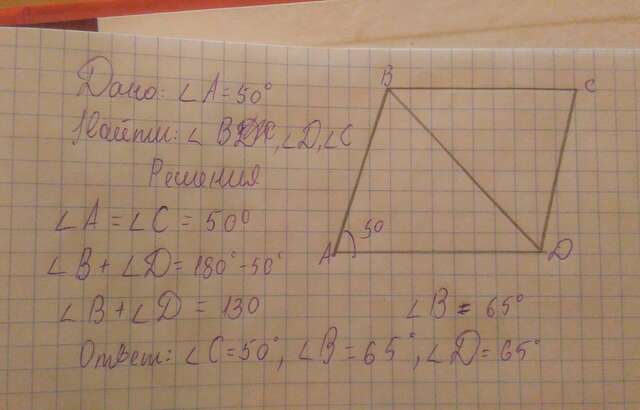 Дано: ∠A=50°
Найти: ∠B, ∠D, ∠C
Решения
∠A = ∠C = 50°
∠B + ∠D = 180° - 50°
∠B + ∠D = 130
∠B = 65°
Ответ: ∠C = 50°, ∠B = 65°, ∠D = 65°
B
C
A
50
D